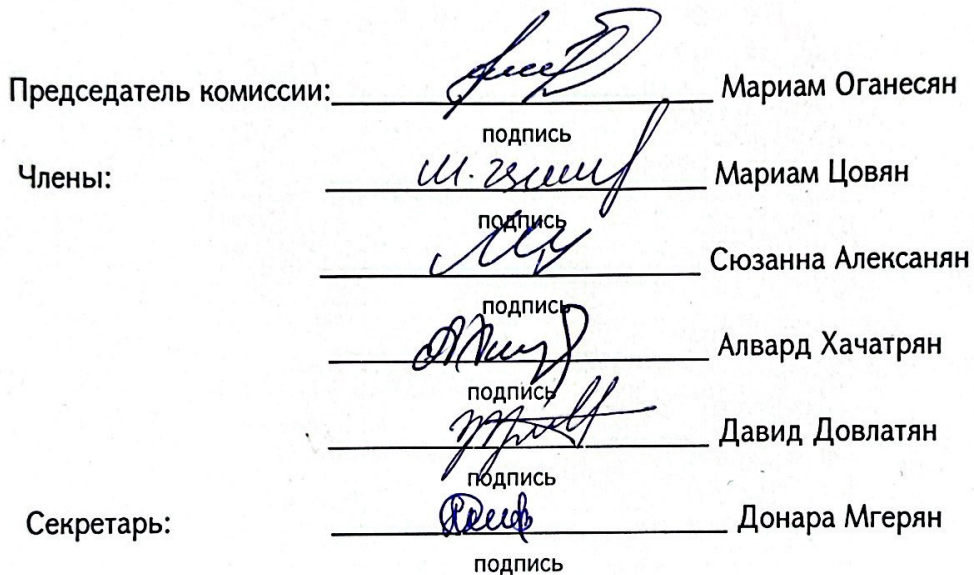 Председатель комиссии: Мариам Оганесян
подпись
Члены: Мариам Цовян
подпись
Сюзанна Алексанян
подпись
Алвард Хачатрян
подпись
Давид Довлатян
подпись
Секретарь: Донара Мгерян
подпись